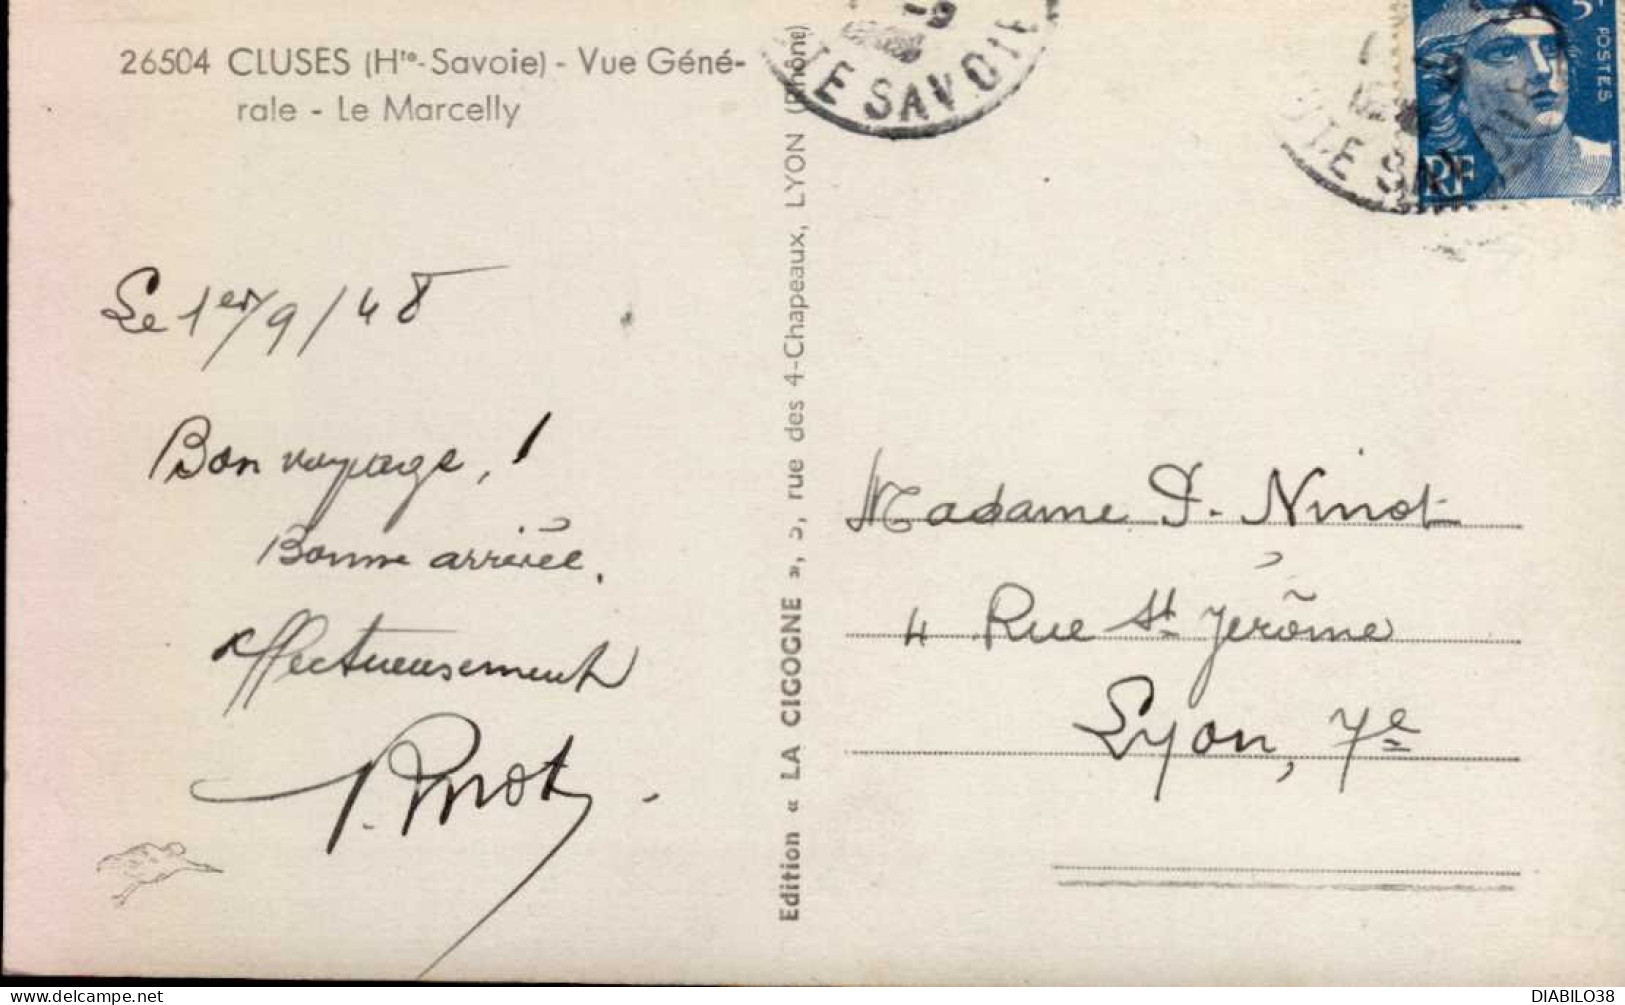 26504 CLUSES (Hte-Savoie) - Vue Géné-
rale - Le Marcelly
Le 1er/9/48
Bon voyage, !
Bonne arrivée.
Affectueusement
Edition « LA CIGOGNE », 5, rue des 4-Chapeaux, LYON (Rhône)
TE SAVOIE
TE SAVOIE
5F
POSTES
RF
Madame P. Ninot
4 Rue St Jérôme
Lyon, 7e
DIABILO38